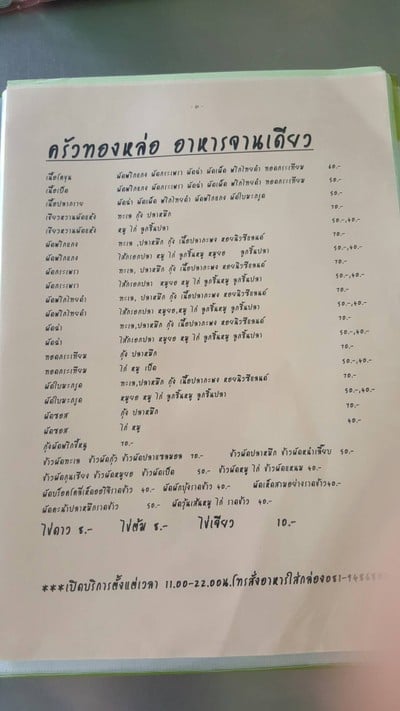 - ๓ -
ครัวทองหล่อ อาหารจานเดียว
เนื้อโคขุน ผัดพริกแกง ผัดกระเพรา ผัดฉ่า ผัดเผ็ด พริกไทยดำ ทอดกระเทียม 60.-
เนื้อเปื่อย ผัดพริกแกง ผัดกระเพรา ผัดฉ่า ผัดเผ็ด พริกไทยดำ ทอดกระเทียม 50.-
เนื้อปลากราย ผัดฉ่า ผัดเผ็ด ผัดพริกไทยดำ ผัดพริกแกง ผัดใบมะกรูด 50.-
เขียวหวานผัดแห้ง ทะเล กุ้ง ปลาหมึก 70.-
เขียวหวานผัดแห้ง หมู ไก่ ลูกชิ้นปลา 50.-,40.-
ผัดพริกแกง ทะเล ,ปลาหมึก กุ้ง เนื้อปลากะพง หอยนิวซีแลนด์ 70.-
ผัดพริกแกง ไส้กรอกปลา หมู ไก่ ลูกชิ้นหมู หมูยอ ลูกชิ้นปลา 50.-,40.-
ผัดกระเพรา ทะเล, ปลาหมึก กุ้ง เนื้อปลากะพง หอยนิวซีแลนด์ 70.-
ผัดกระเพรา ไส้กรอกปลา หมูยอ หมู ไก่ ลูกชิ้นหมู ลูกชิ้นปลา 50.-,40.-
ผัดพริกไทยดำ ทะเล, ปลาหมึก กุ้ง เนื้อปลากะพง หอยนิวซีแลนด์ 70.-
ผัดพริกไทยดำ ไส้กรอกปลา หมูยอ,หมู ไก่ ลูกชิ้นหมู ลูกชิ้นปลา 50.-,40.-
ผัดฉ่า ทะเล,ปลาหมึก กุ้ง เนื้อปลากะพง หอยนิวซีแลนด์ 70.-
ผัดฉ่า ไส้กรอกปลา หมูยอ หมู ไก่ ลูกชิ้นหมู ลูกชิ้นปลา 50.-,40.-
ทอดกระเทียม กุ้ง ปลาหมึก 70.-
ทอดกระเทียม ไก่ หมู เป็ด 50.-,40.-
ผัดใบมะกรูด ทะเล,ปลาหมึก กุ้ง เนื้อปลากะพง หอยนิวซีแลนด์ 70.-
ผัดใบมะกรูด หมูยอ หมู ไก่ ลูกชิ้นหมู ลูกชิ้นปลา 50.-,40.-
ผัดซอส กุ้ง ปลาหมึก 70.-
ผัดซอส ไก่ หมู 40.-
กุ้งผัดพริกขี้หนู 70.-
ข้าวผัดทะเล ข้าวผัดกุ้ง ข้าวผัดปลาแซลมอน 70.- ข้าวผัดปลาหมึก ข้าวผัดหนำเลี๊ยบ 50.-
ข้าวผัดกุนเชียง ข้าวผัดหมูยอ ข้าวผัดเป็ด 50.- ข้าวผัดหมู ไก่ ข้าวผัดแหนม 40.-
ผัดบร็อคโคลี่เห็ดออรินจิราดข้าว 40.- ผัดผักบุ้งราดข้าว 40.- ผัดเห็ดสามอย่างราดข้าว40.-
ผัดคะน้าปลาหมึกราดข้าว 50.- ผัดวุ้นเส้นหมู ไก่ ราดข้าว 40.-
ไข่ดาว 8.- ไข่ต้ม 8.- ไข่เจียว 10.-
***เปิดบริการตั้งแต่เวลา 11.00-22.00น.โทรสั่งอาหารใส่กล่อง081-